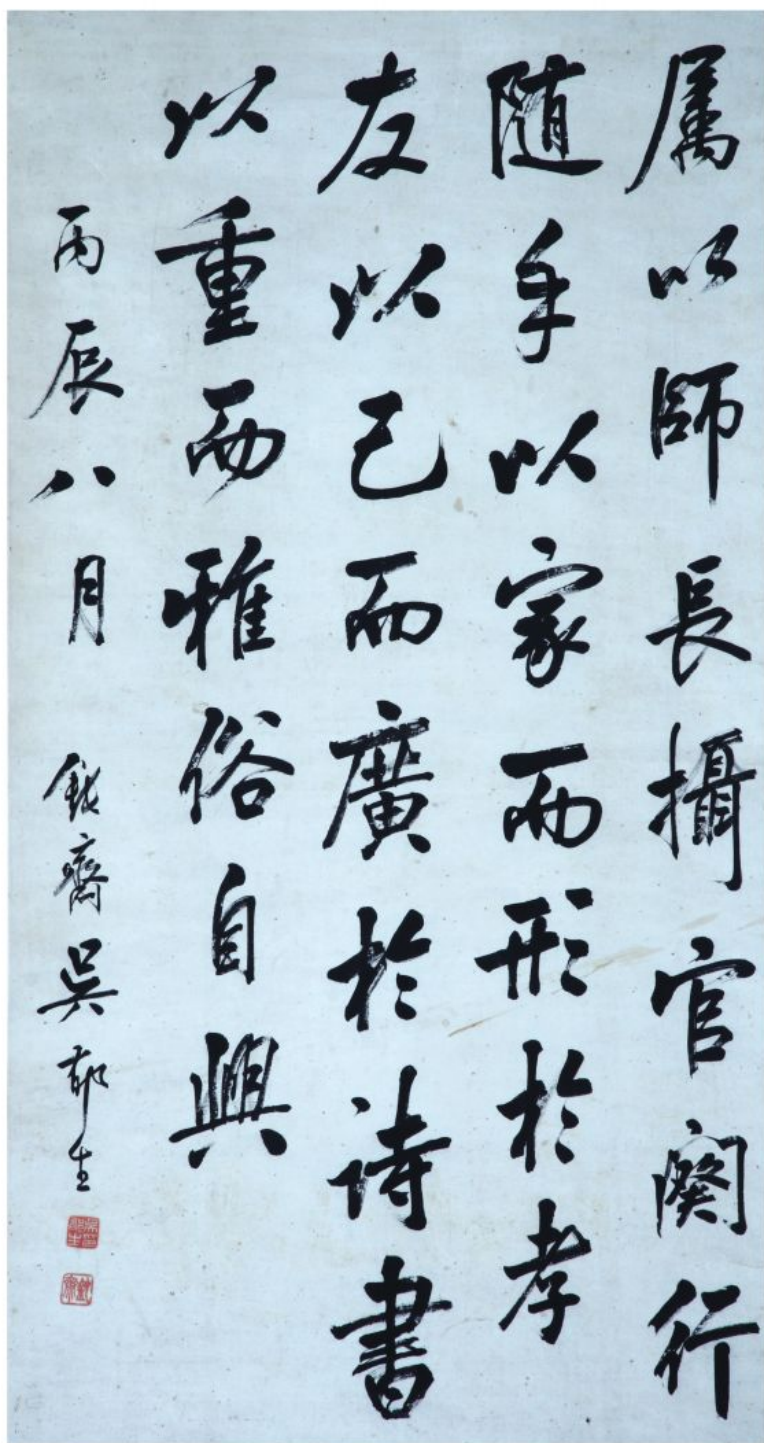 属以師長攝官闋行
随手以家而形於孝
友以己而廣於詩書
以重而雅俗自興
丙辰八月 鈍齋吳郁生